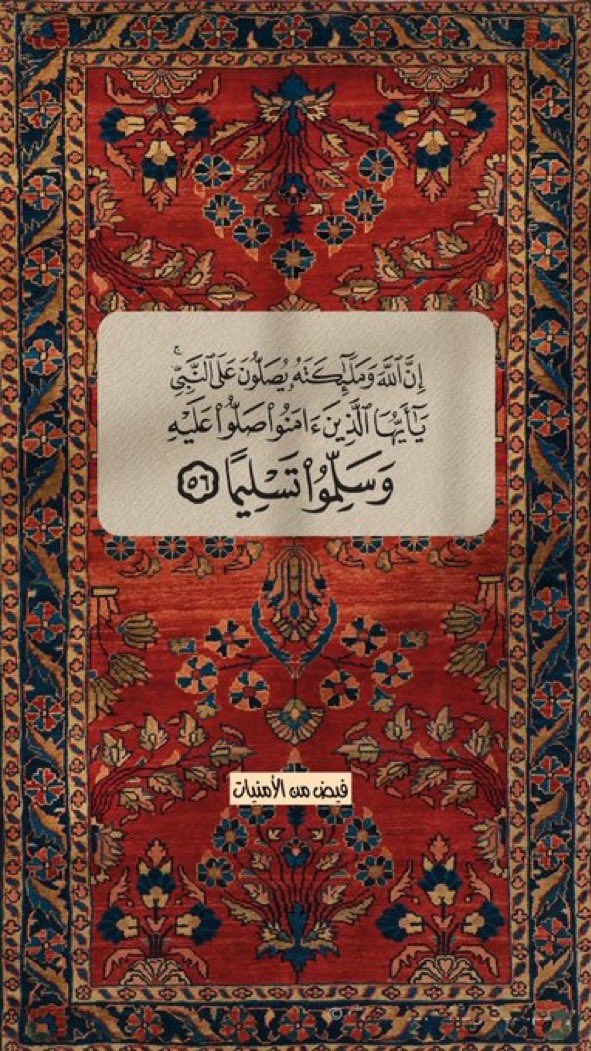 إِنَّ ٱللَّهَ وَمَلَٰٓئِكَتَهُۥ يُصَلُّونَ عَلَى ٱلنَّبِيِّۚ
يَٰٓأَيُّهَا ٱلَّذِينَ ءَامَنُوا۟ صَلُّوا۟ عَلَيْهِ
وَسَلِّمُوا۟ تَسْلِيمًا ٥٦
فيض من الأمنيات